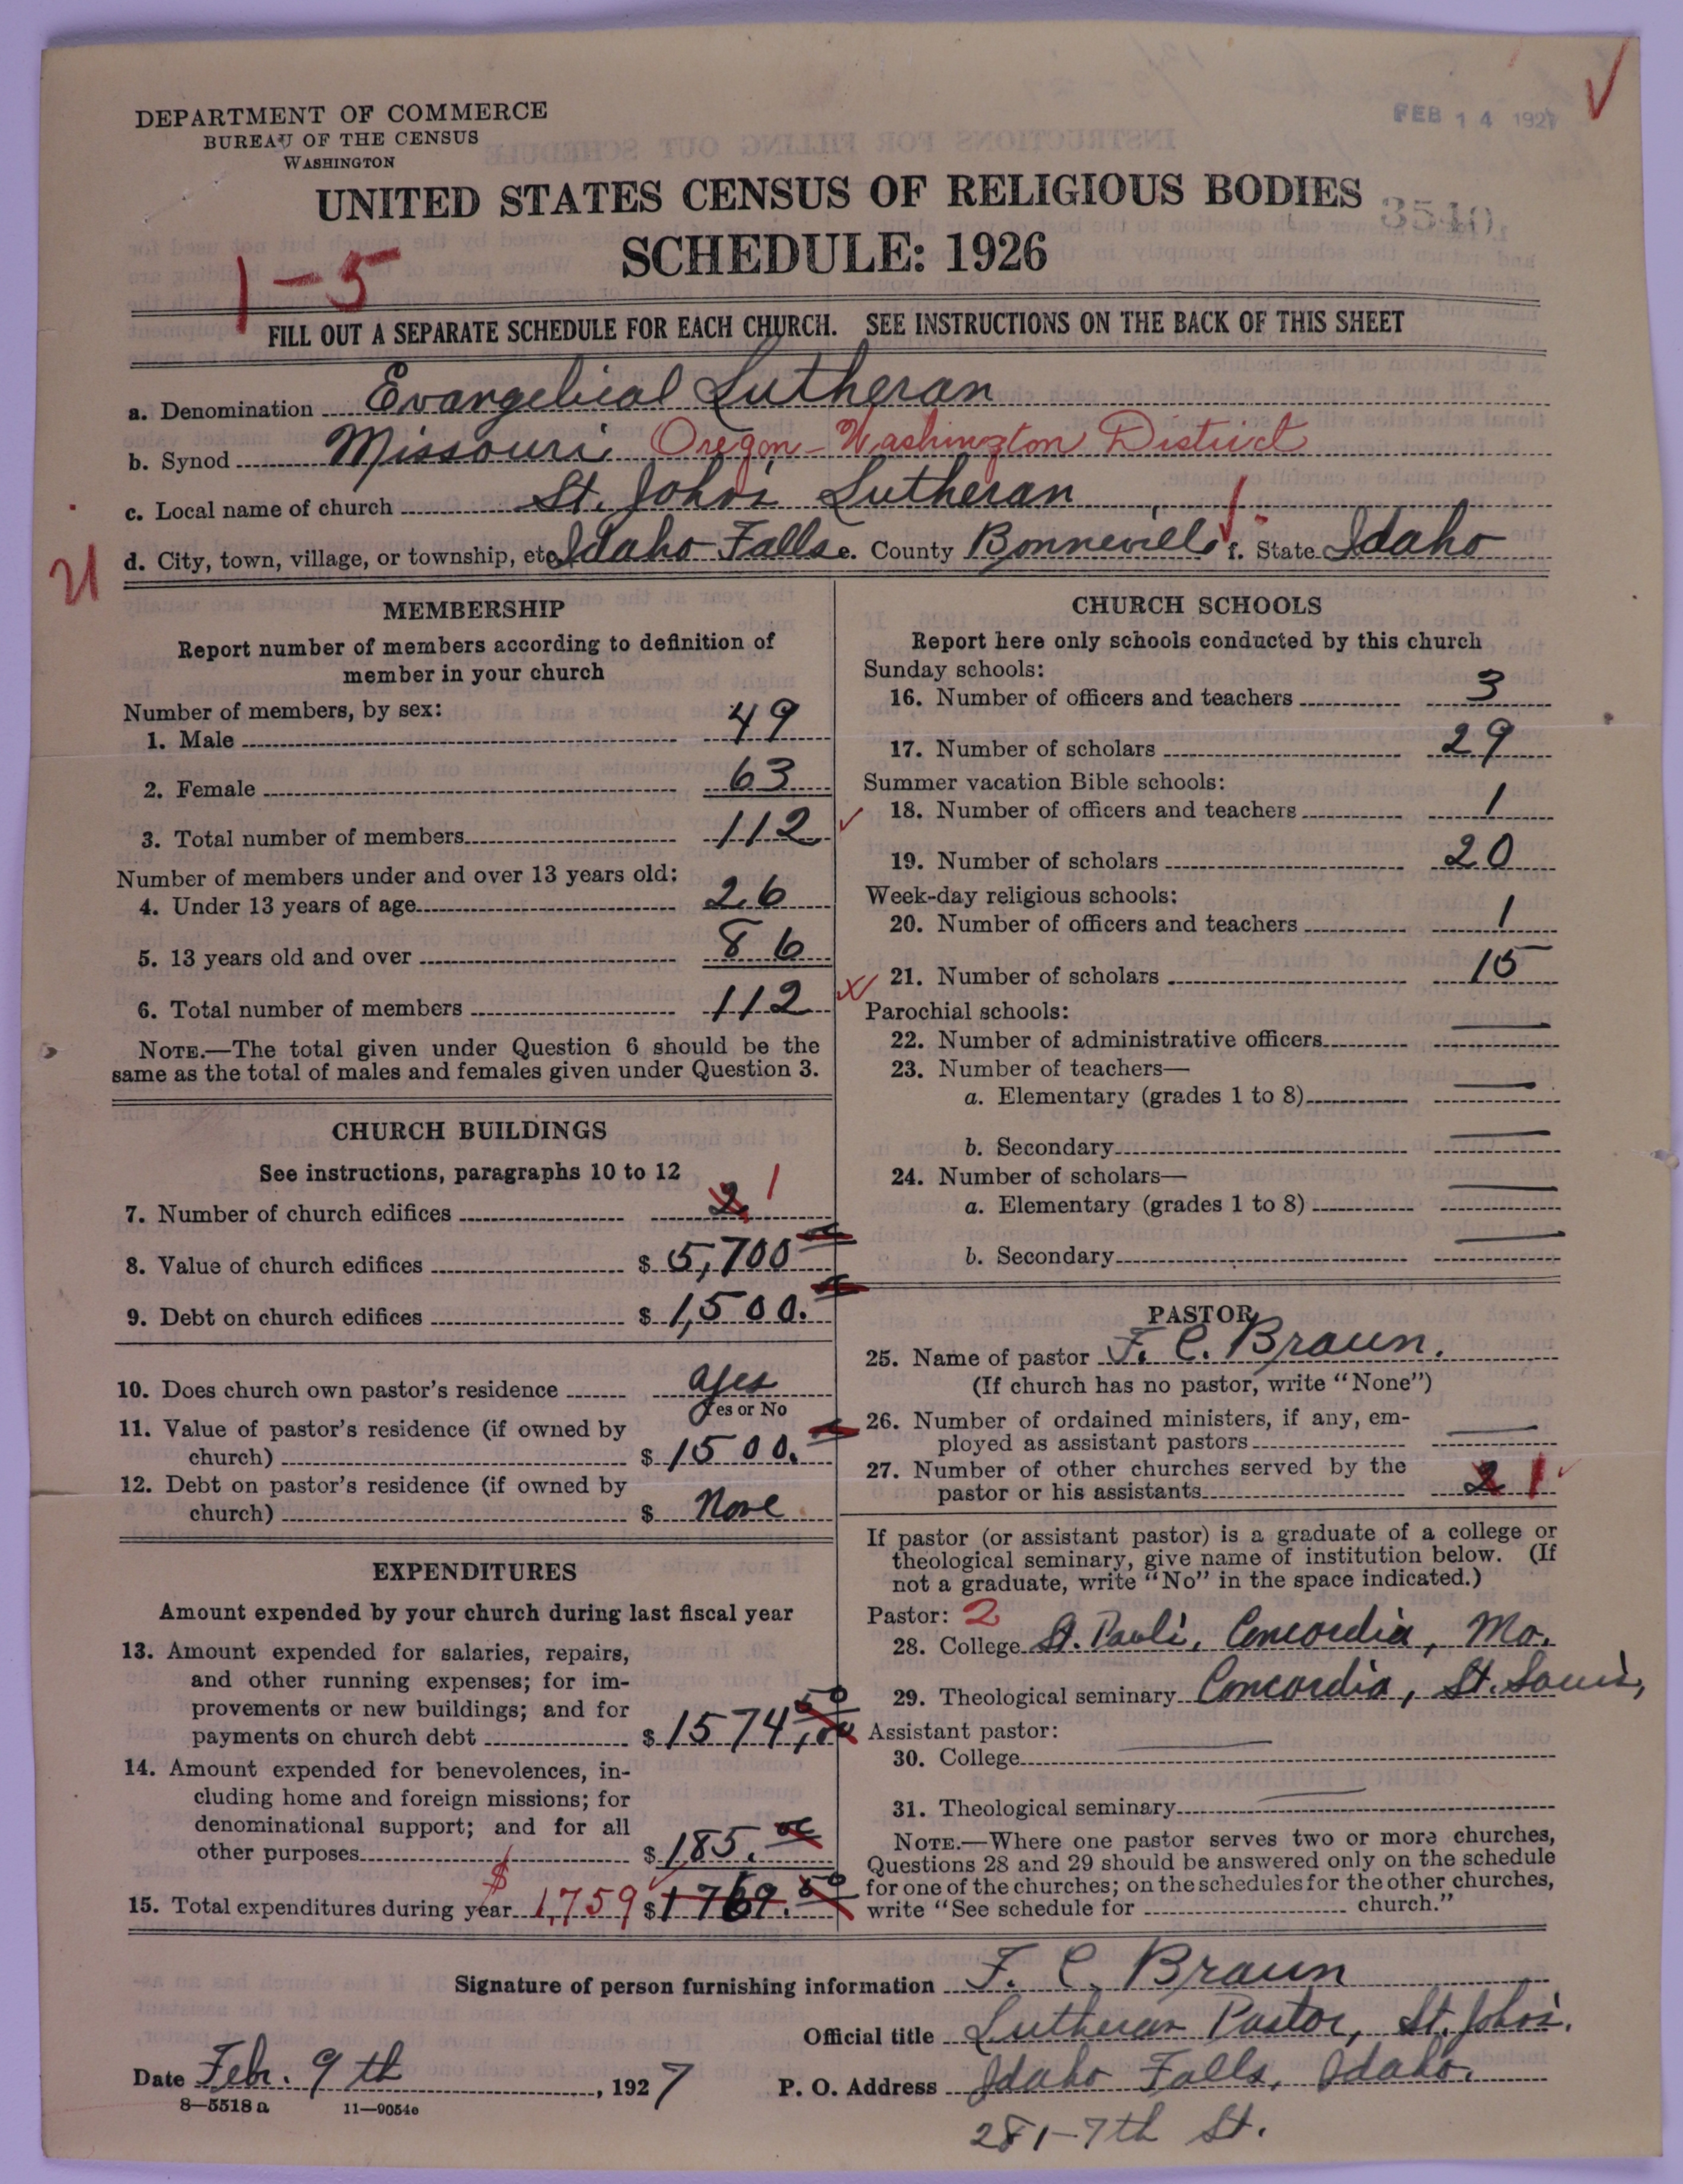 DEPARTMENT OF COMMERCE
BUREAU OF THE CENSUS
WASHINGTON
FEB 14 1927
UNITED STATES CENSUS OF RELIGIOUS BODIES
3540
SCHEDULE: 1926
1-5
FILL OUT A SEPARATE SCHEDULE FOR EACH CHURCH. SEE INSTRUCTIONS ON THE BACK OF THIS SHEET
a. Denomination Evangelical Lutheran
b. Synod Missouri Oregon-Washington District
c. Local name of church St. John's Lutheran
d. City, town, village, or township, etc. Idaho Falls e. County Bonneville f. State Idaho
21
MEMBERSHIP
Report number of members according to definition of
member in your church
Number of members, by sex:
1. Male 49
2. Female 63
3. Total number of members 112
Number of members under and over 13 years old:
4. Under 13 years of age 26
5. 13 years old and over 86
6. Total number of members 112
NOTE.—The total given under Question 6 should be the
same as the total of males and females given under Question 3.
CHURCH BUILDINGS
See instructions, paragraphs 10 to 12
7. Number of church edifices 2 1
8. Value of church edifices $ 5,700
9. Debt on church edifices $ 1,500.
10. Does church own pastor's residence yes
Yes or No
11. Value of pastor's residence (if owned by
church) $ 1500.
12. Debt on pastor's residence (if owned by
church) $ None
EXPENDITURES
Amount expended by your church during last fiscal year
13. Amount expended for salaries, repairs,
and other running expenses; for im-
provements or new buildings; and for
payments on church debt $ 1574.50
14. Amount expended for benevolences, in-
cluding home and foreign missions; for
denominational support; and for all
other purposes $ 185.
15. Total expenditures during year $ 1,759 $ 1769.50
CHURCH SCHOOLS
Report here only schools conducted by this church
Sunday schools:
16. Number of officers and teachers 3
17. Number of scholars 29
Summer vacation Bible schools:
18. Number of officers and teachers 1
19. Number of scholars 20
Week-day religious schools:
20. Number of officers and teachers 1
21. Number of scholars 15
Parochial schools:
22. Number of administrative officers
23. Number of teachers—
a. Elementary (grades 1 to 8)
b. Secondary
24. Number of scholars—
a. Elementary (grades 1 to 8)
b. Secondary
PASTOR
25. Name of pastor F. C. Braun.
(If church has no pastor, write "None")
26. Number of ordained ministers, if any, em-
ployed as assistant pastors
27. Number of other churches served by the
pastor or his assistants 2 1
If pastor (or assistant pastor) is a graduate of a college or
theological seminary, give name of institution below. (If
not a graduate, write "No" in the space indicated.)
Pastor: 2
28. College St. Paul's, Concordia, Mo.
29. Theological seminary Concordia, St. Louis,
Assistant pastor:
30. College
31. Theological seminary
NOTE.—Where one pastor serves two or more churches,
Questions 28 and 29 should be answered only on the schedule
for one of the churches; on the schedules for the other churches,
write "See schedule for church."
Signature of person furnishing information F. C. Braun
Official title Lutheran Pastor, St. John's.
Date Feb. 9th, 1927
P. O. Address Idaho Falls, Idaho.
281-7th St.
8—5518 a 11—9054c